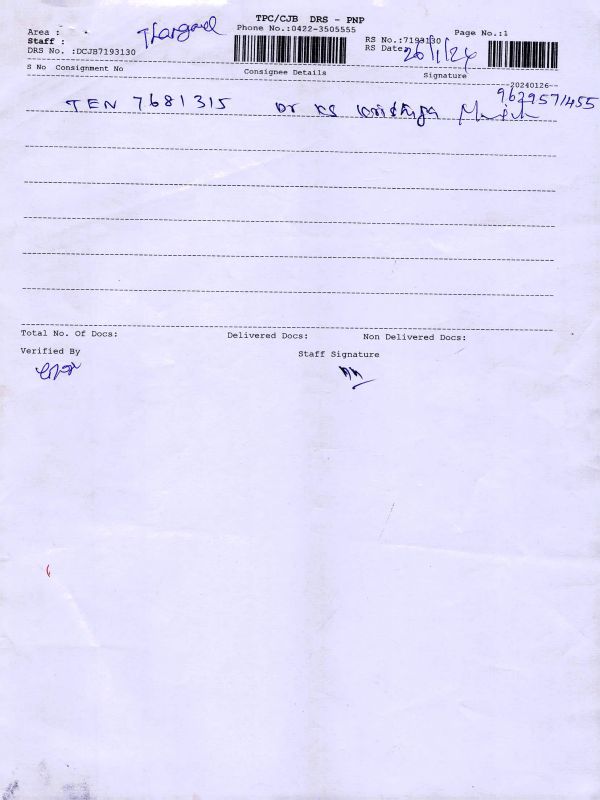 TPC/CJB DRS - PNP
Phone No.:0422-3505555
Area :
Staff :
DRS No. :DCJB7193130
RS No.:7193130
RS Date: 26/1/24
Page No.:1
S No Consignment No Consignee Details Signature
--20240126--
TEN 7681315 Dr KS 9629571455
Total No. Of Docs: Delivered Docs: Non Delivered Docs:
Verified By Staff Signature